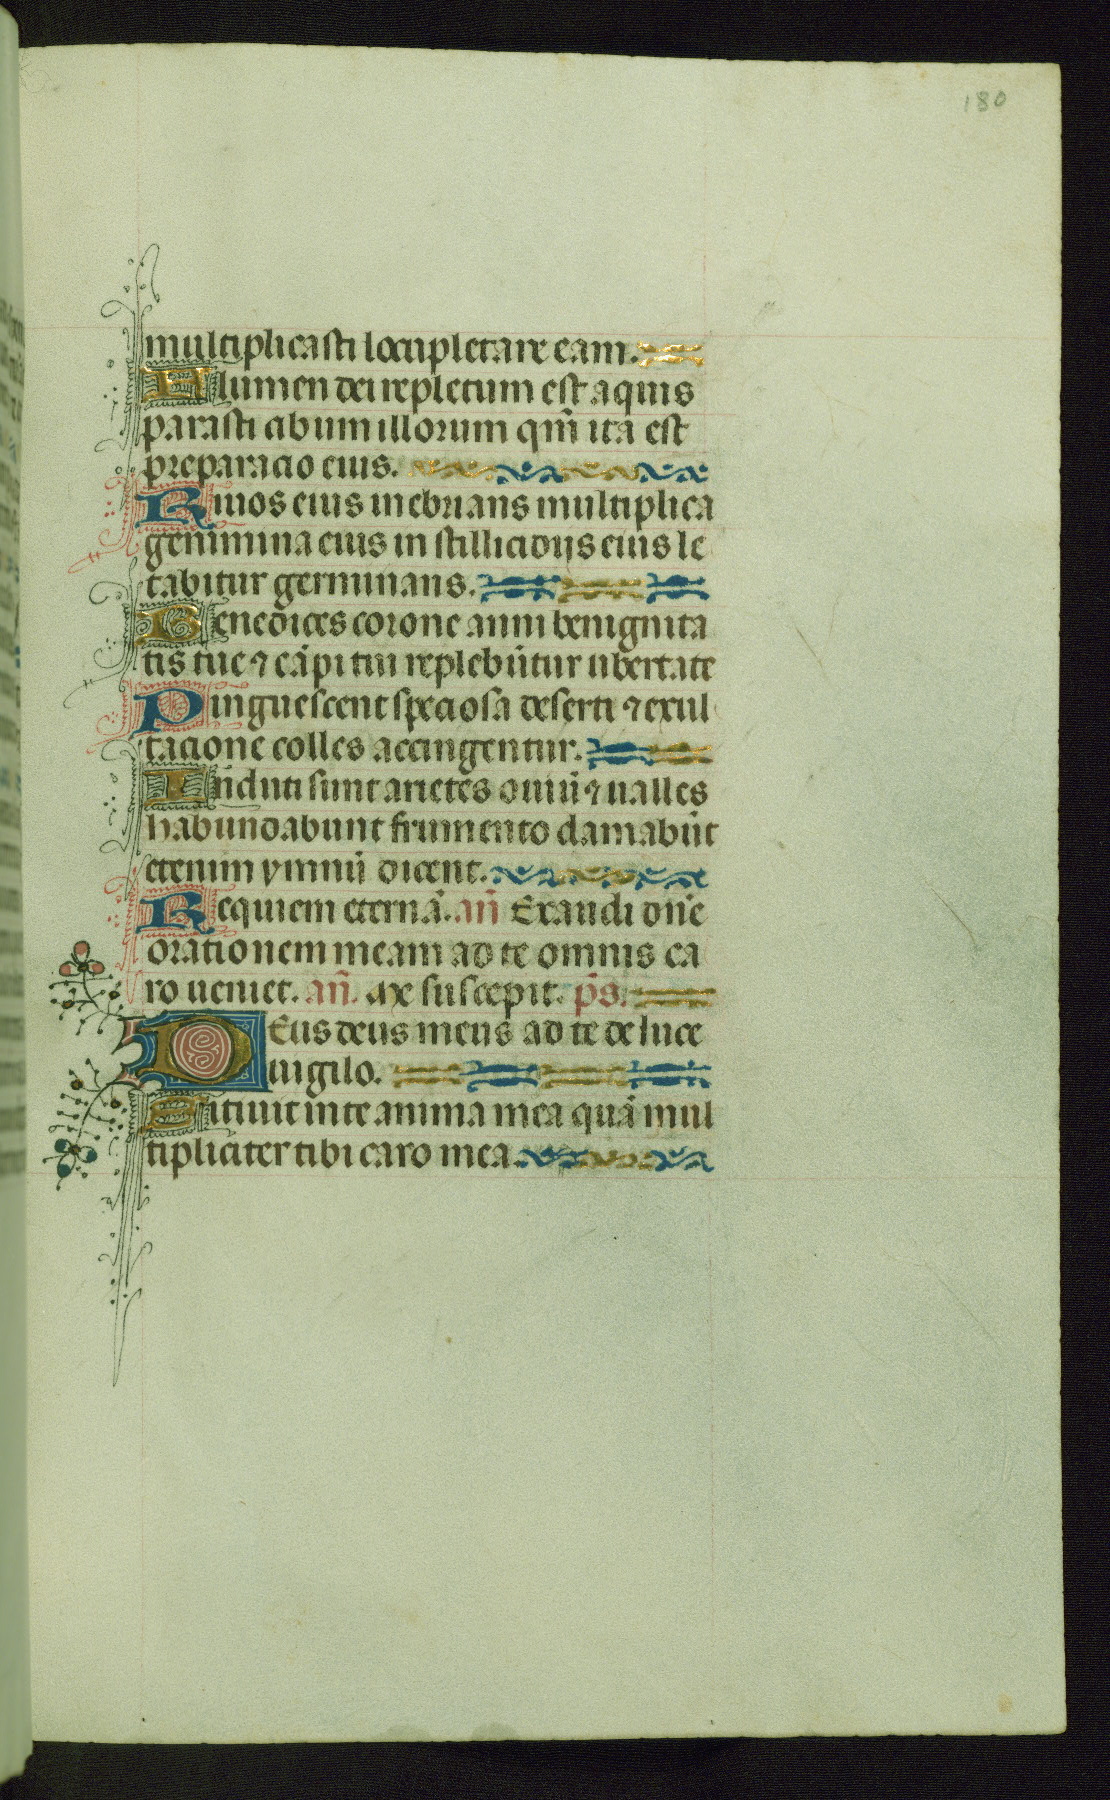 180
multiplicasti locupletare eam.
Flumen dei repletum est aquis
parasti cibum illorum qm̄ ita est
preparacio eius.
Riuos eius inebrians multiplica
genimina eius in stillicidijs eius le
tabitur germinans.
Benedices corone anni benignita
tis tue ⁊ cāpi tui replebūtur ubertate
Pinguescent speciosa deserti ⁊ exul
tacione colles accingentur.
Induti sunt arietes ouiū ⁊ ualles
habundabunt frumento clamabūt
etenim ymnū dicent.
Requiem eternā. an̄ Exaudi dn̄e
orationem meam ad te omnis ca
ro ueniet. an̄. Me suscepit. p̄s.
Deus deus meus ad te de luce
uigilo.
Sitiuit in te anima mea quā mul
tipliciter tibi caro mea.